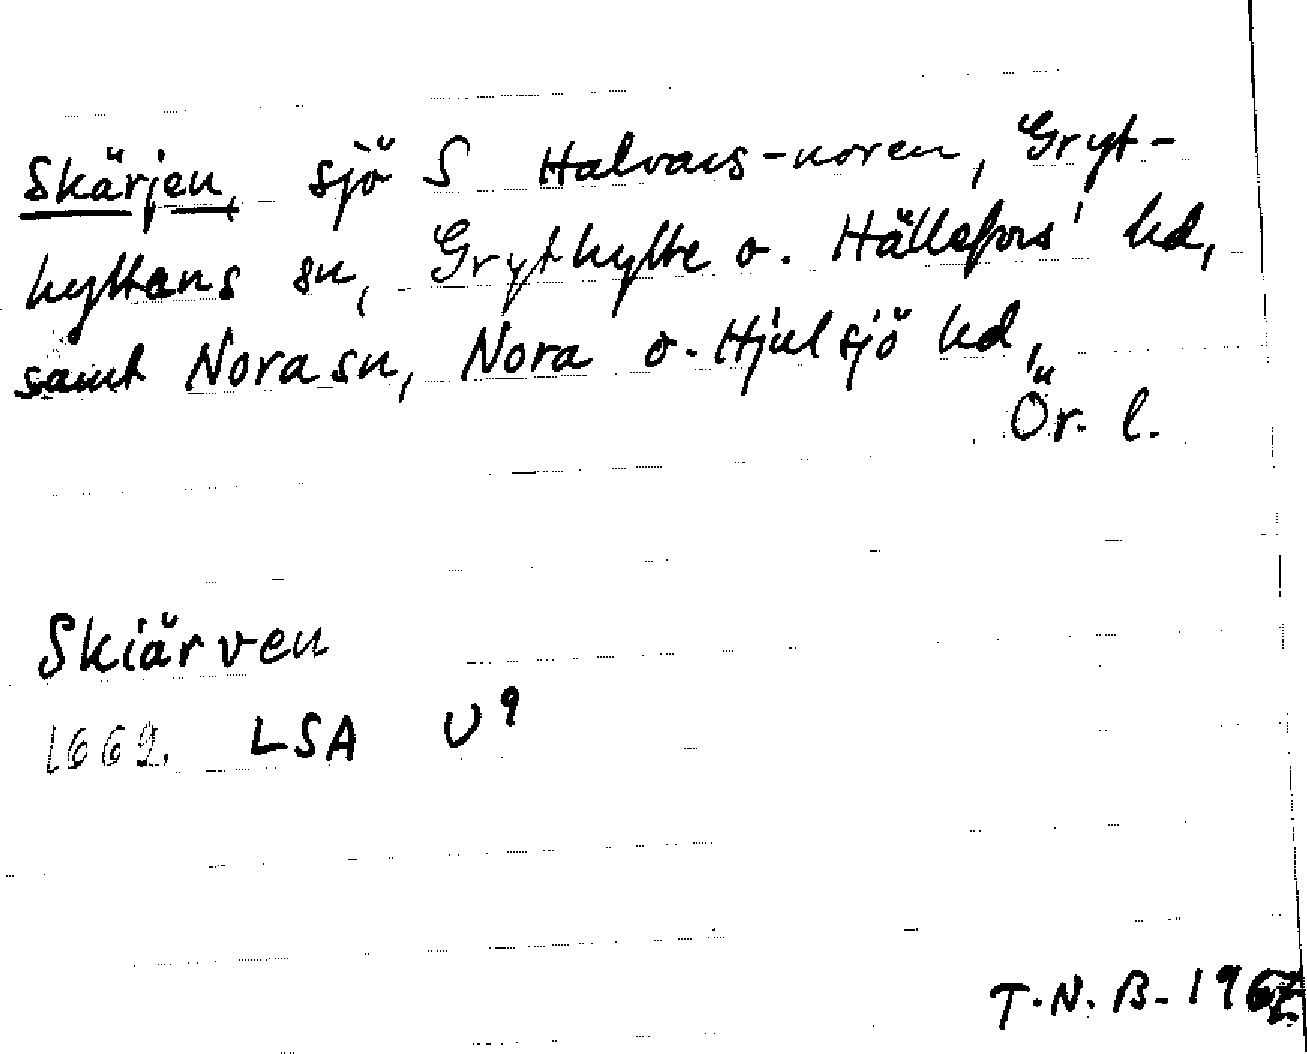 Skärjen, sjö S Halvars-noren, Gryt-
hyttans sn, Grythytte o. Hällefors' hd,
samt Nora sn, Nora o. Hjulsjö hd,
Ör. l.
Skiärven
1662. LSA U9
T.N.B.